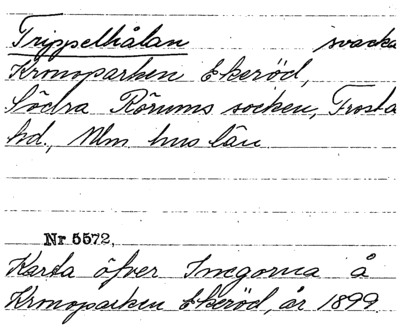 Trippelhålan svacka
Kronoparken Ekeröd,
Södra Rörums socken, Frosta
hd., Mlm hus län
Nr 5572,
Karta öfver Inegorna å
Kronoparken Ekeröd, år 1899.